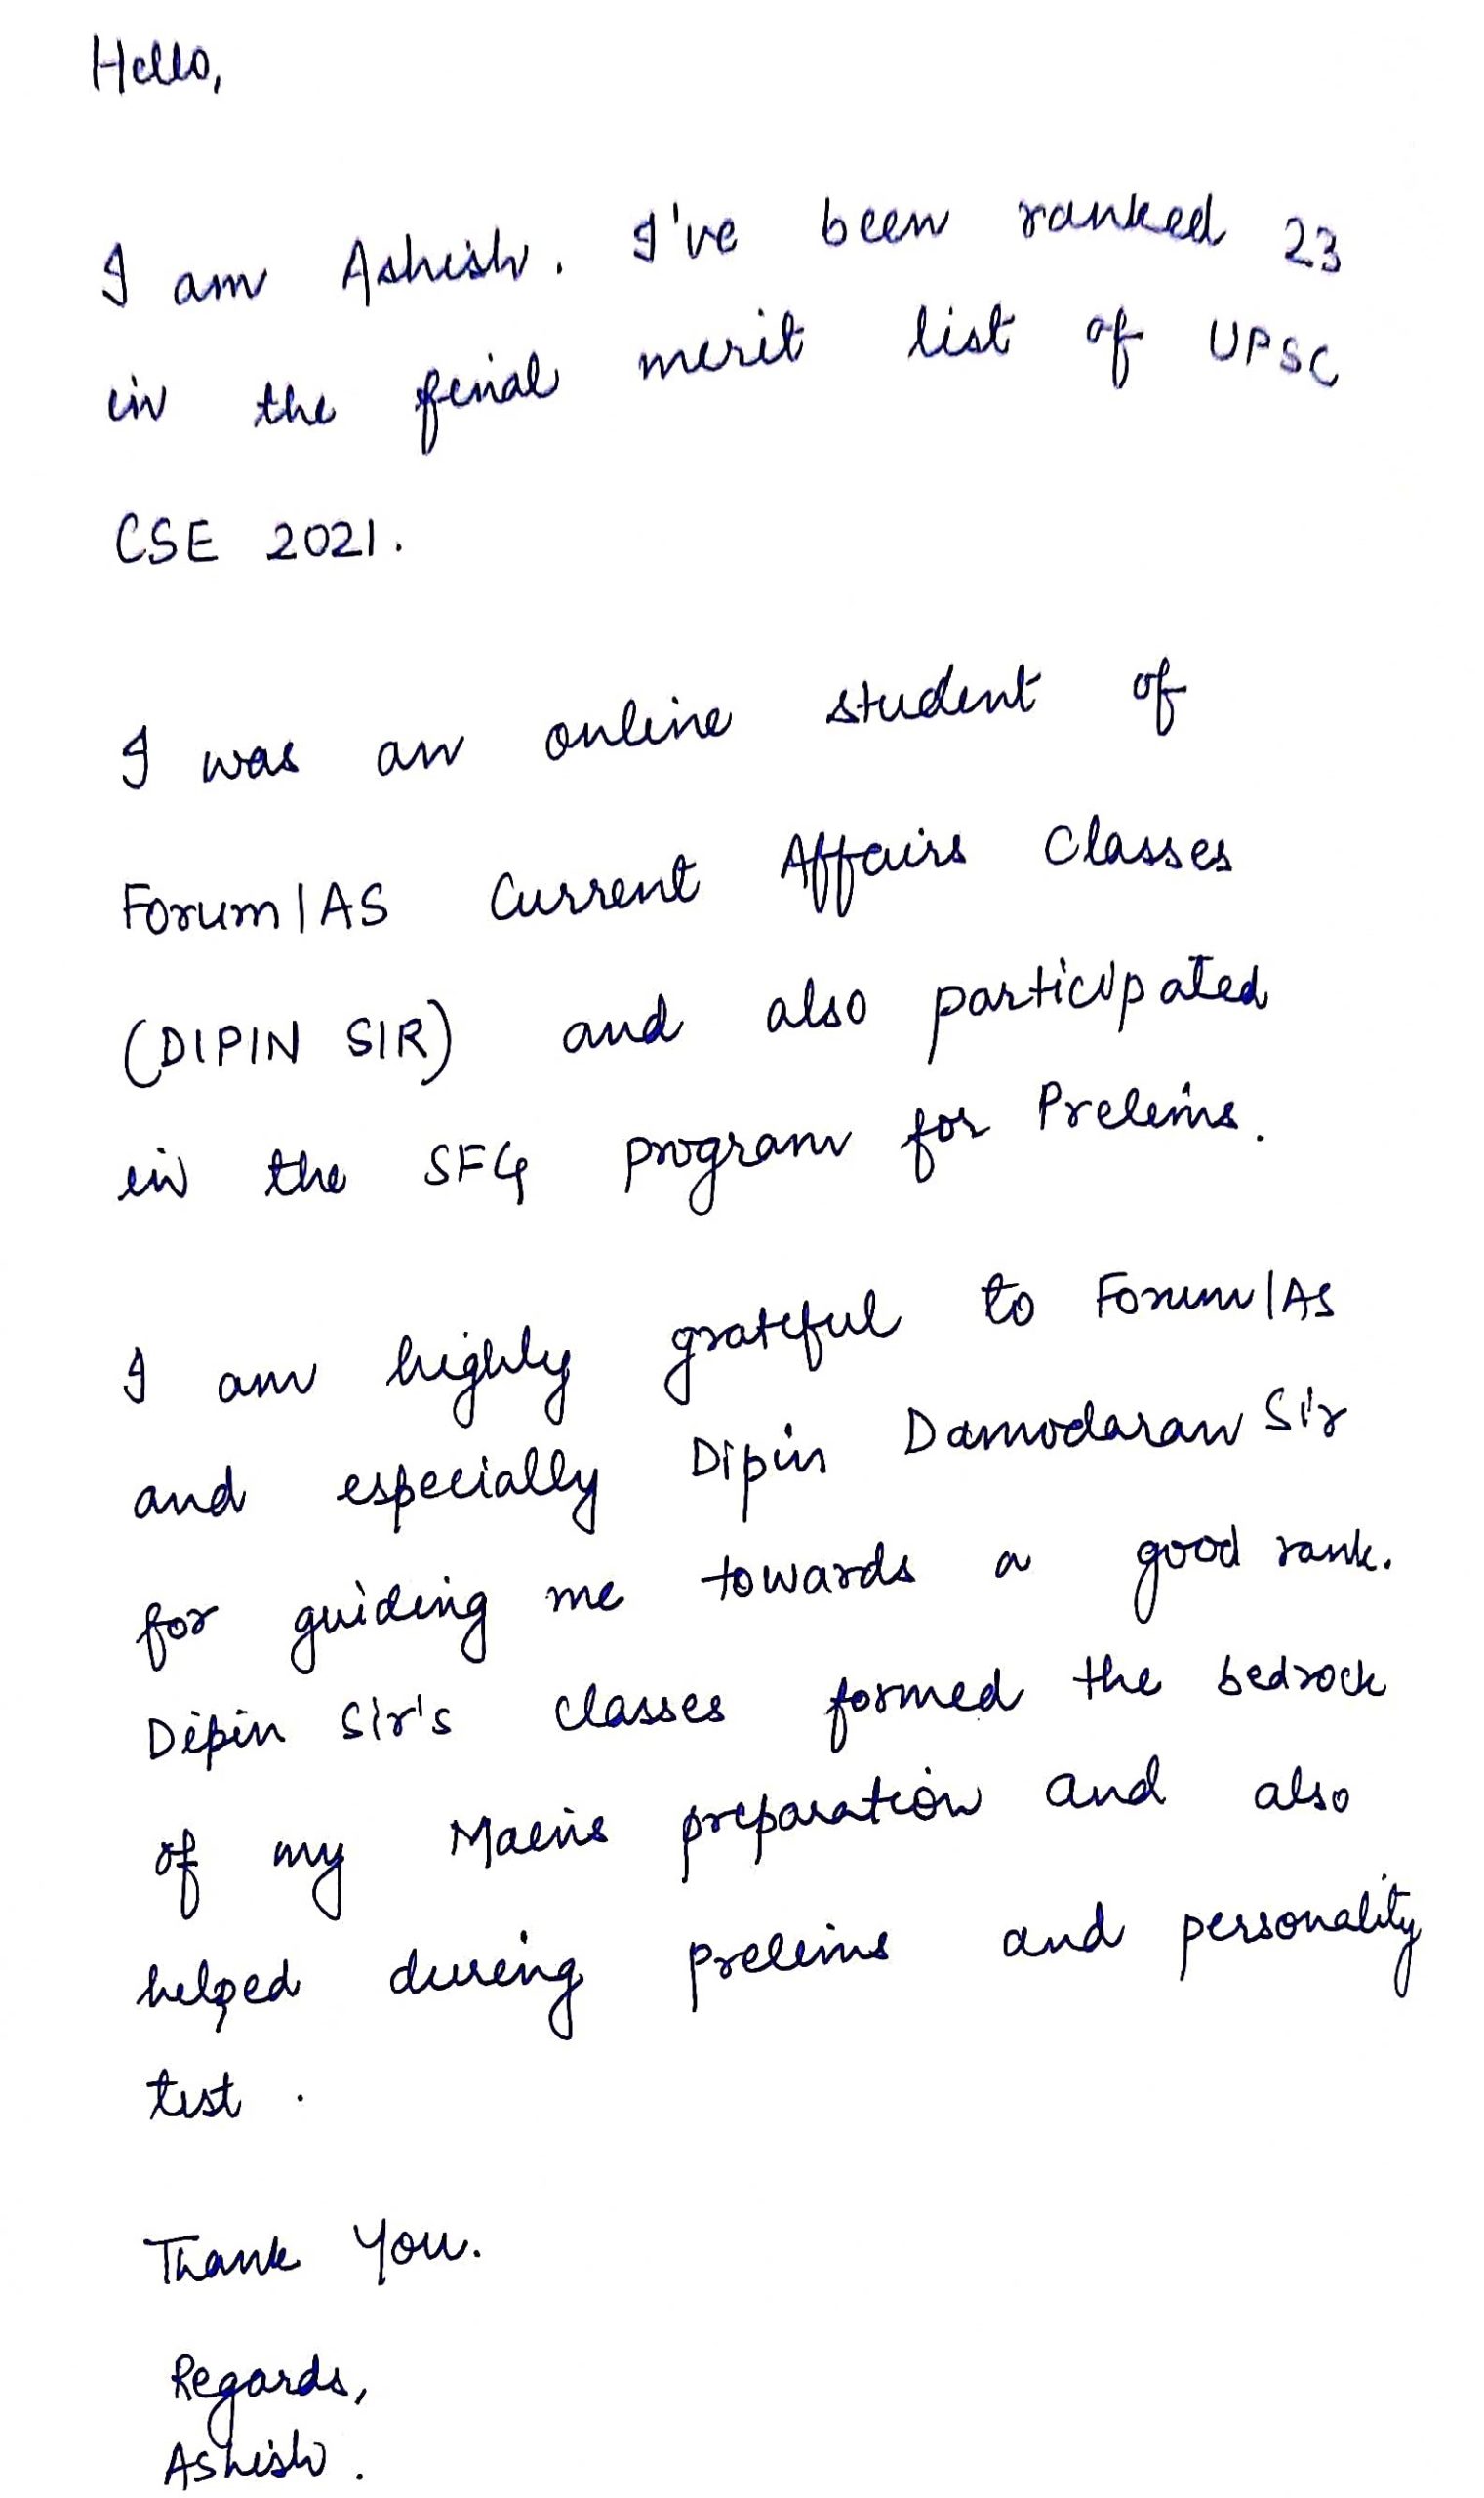 Hello,
I am Ashish. I've been ranked 23
in the final merit list of UPSC
CSE 2021.
I was an online student of
ForumIAS Current Affairs Classes
(DIPIN SIR) and also participated
in the SFG program for Prelims.
I am highly grateful to ForumIAS
and especially Dipin Damodaran Sir
for guiding me towards a good rank.
Dipin Sir's classes formed the bedrock
of my Mains preparation and also
helped during prelims and personality
test.
Thank You.
Regards,
Ashish.